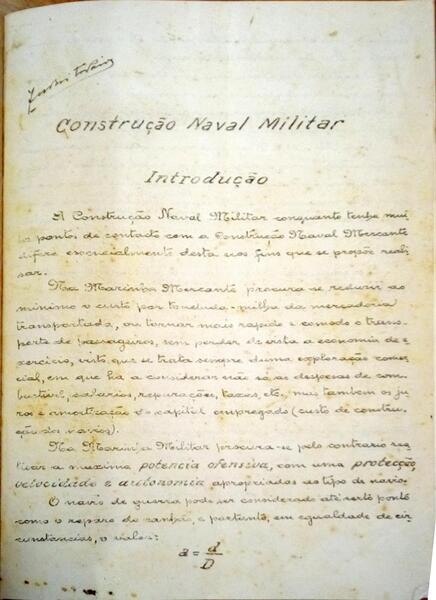 Construção Naval Militar
Introdução
A Construção Naval Militar conquanto tenha mui
tos pontos de contacto com a Construção Naval Mercante
difere essencialmente desta nos fins que se propõe reali
sar.
Na Marinha Mercante procura-se reduzir ao
minimo o custo por tonelada-milha da mercadoria
transportada, ou tornar mais rapido e comodo o trans-
porte de passageiros, sem perder de vista a economia de e
xercicio, visto que se trata sempre duma exploração comer
cial, em que ha a considerar não só as despesas de com
bustivel, salarios, reparações, taxas, etc, mas tambem os ju
ros e amortização do capital empregado (custo de constru
ção dos navios).
Na Marinha Militar procura-se pelo contrario rea
lizar a maxima potencia ofensiva, com uma protecção,
velocidade e autonomia apropriadas ao tipo de navio.
O navio de guerra pode ser considerado até certo ponto
como o reparo do canhão, e portanto, em egualdade de cir
cunstancias, o valor:
a = d
D